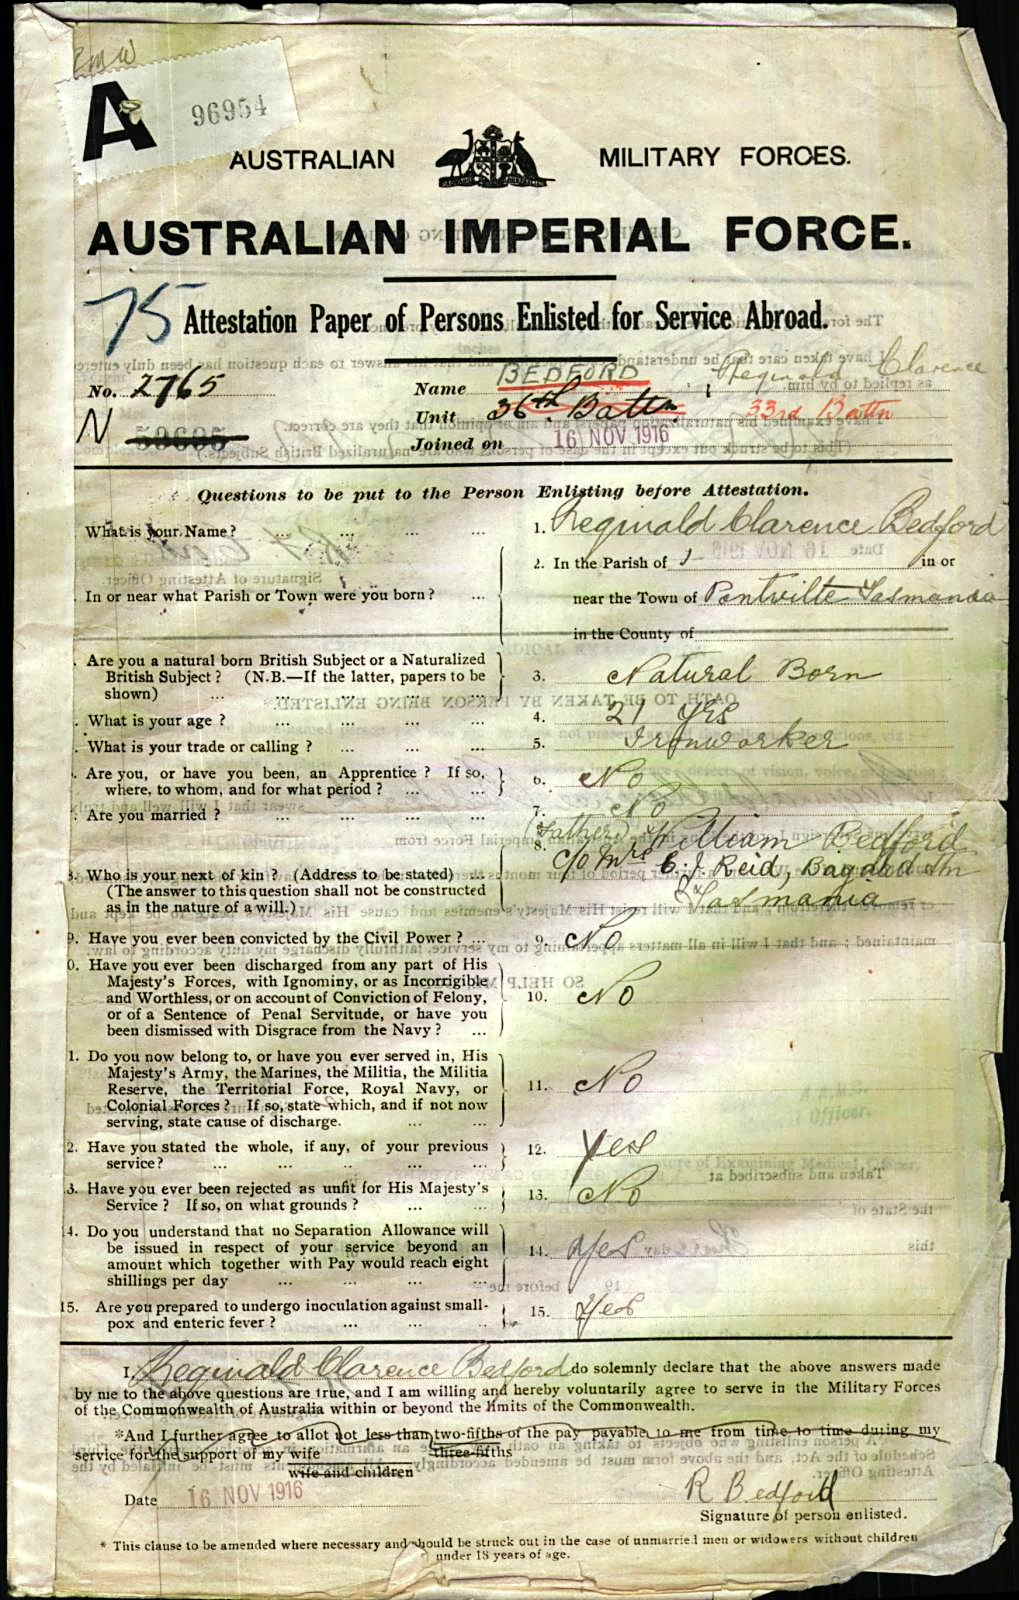 R M W
A 96954
AUSTRALIAN MILITARY FORCES.
AUSTRALIAN IMPERIAL FORCE.
75
Attestation Paper of Persons Enlisted for Service Abroad.
No. 2765 Name BEDFORD, Reginald Clarence
N Unit 36th Battn. 33rd Battn
50605 Joined on 16 NOV 1916
Questions to be put to the Person Enlisting before Attestation.
What is your Name? ... ... ... 1. Reginald Clarence Bedford
2. In the Parish of in or
In or near what Parish or Town were you born? ... near the Town of Pontville Tasmania
in the County of
Are you a natural born British Subject or a Naturalized
British Subject? (N.B.—If the latter, papers to be
shown) ... ... ... ... 3. Natural Born
What is your age ? ... ... ... ... 4. 21 yrs
What is your trade or calling ? ... ... ... 5. Ironworker
Are you, or have you been, an Apprentice ? If so,
where, to whom, and for what period ? ... ... 6. No
Are you married ? ... ... ... ... 7. No
(Father) William Bedford
8. c/o Mrs E. J. Reid, Bagdad Stn
Tasmania
8. Who is your next of kin ? (Address to be stated)
(The answer to this question shall not be constructed
as in the nature of a will.)
9. Have you ever been convicted by the Civil Power ? ... 9. No
0. Have you ever been discharged from any part of His
Majesty's Forces, with Ignominy, or as Incorrigible
and Worthless, or on account of Conviction of Felony,
or of a Sentence of Penal Servitude, or have you
been dismissed with Disgrace from the Navy ? ... 10. No
1. Do you now belong to, or have you ever served in, His
Majesty's Army, the Marines, the Militia, the Militia
Reserve, the Territorial Force, Royal Navy, or
Colonial Forces ? If so, state which, and if not now
serving, state cause of discharge. ... ... 11. No
2. Have you stated the whole, if any, of your previous
service? ... ... .. ... ... 12. Yes
3. Have you ever been rejected as unfit for His Majesty's
Service ? If so, on what grounds ? ... ... 13. No
4. Do you understand that no Separation Allowance will
be issued in respect of your service beyond an
amount which together with Pay would reach eight
shillings per day ... ... ... ... 14. Yes
15. Are you prepared to undergo inoculation against small-
pox and enteric fever ? ... ... .. 15. Yes
I, Reginald Clarence Bedford do solemnly declare that the above answers made
by me to the above questions are true, and I am willing and hereby voluntarily agree to serve in the Military Forces
of the Commonwealth of Australia within or beyond the limits of the Commonwealth.
*And I further agree to allot not less than two-fifths of the pay payable to me from time to time during my
three-fifths
service for the support of my wife
wife and children
Date 16 NOV 1916 R Bedford
Signature of person enlisted.
* This clause to be amended where necessary and should be struck out in the case of unmarried men or widowers without children
under 18 years of age.